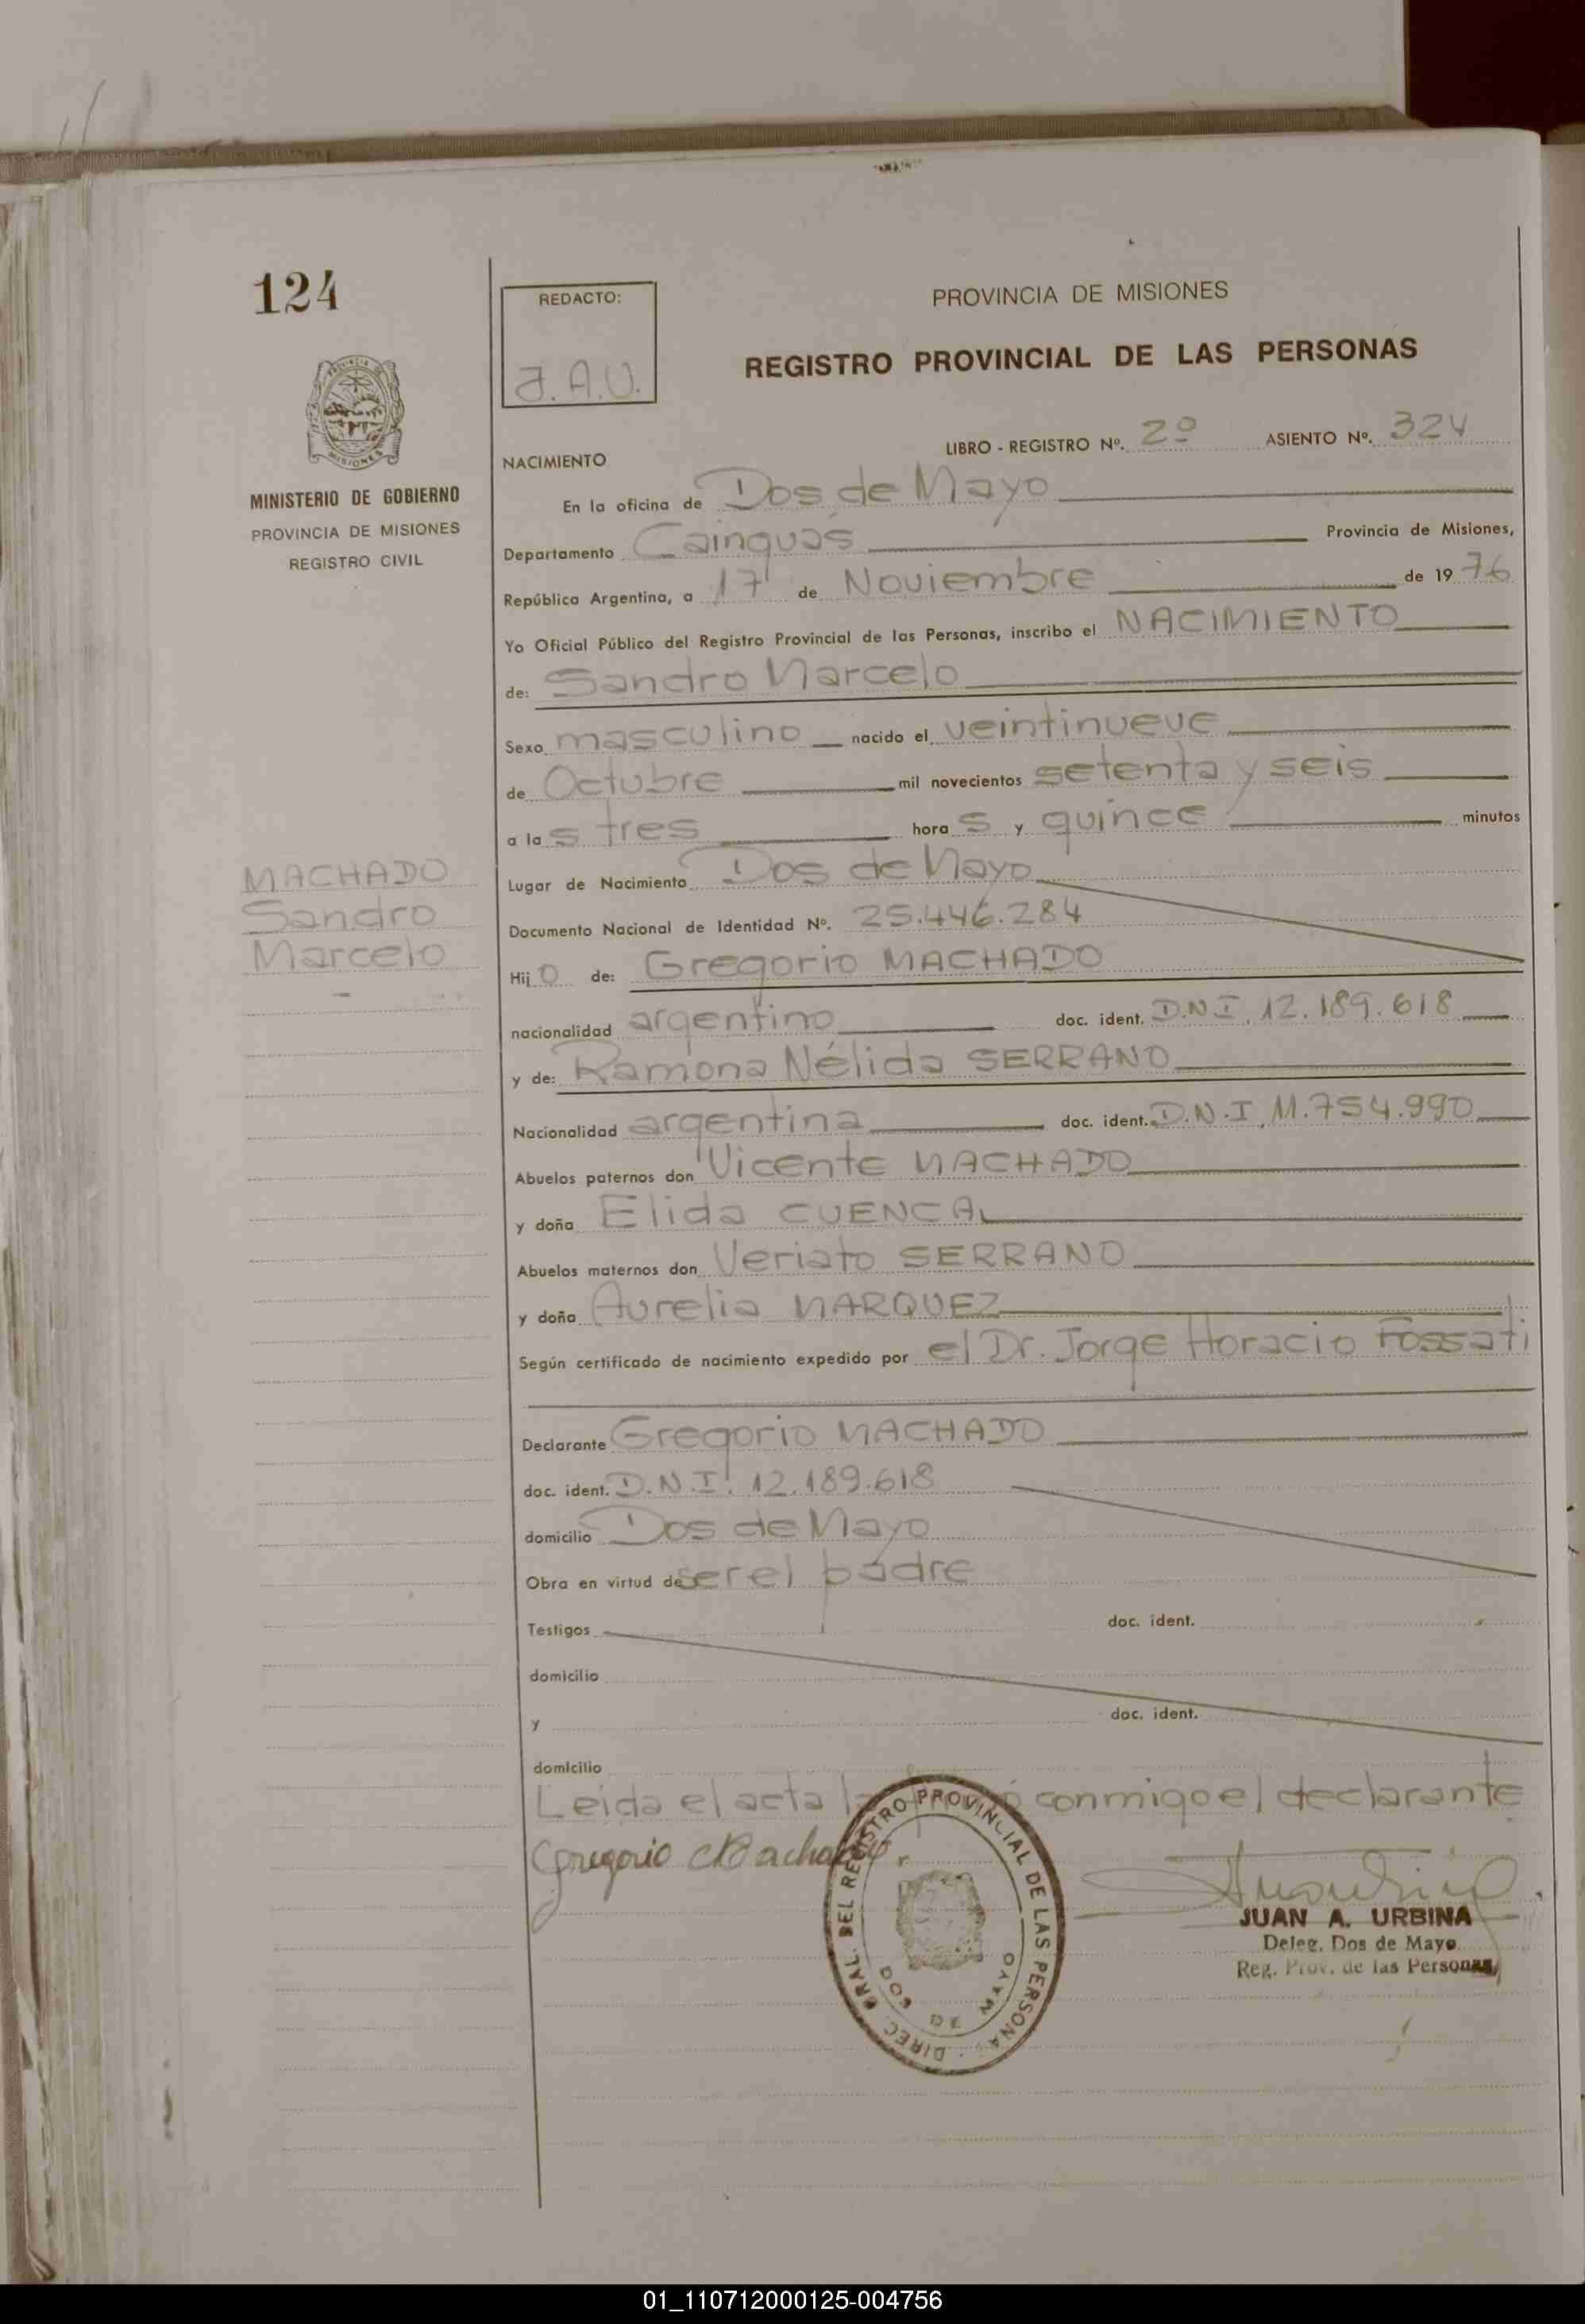 124
REDACTO:
J.A.U.
PROVINCIA DE MISIONES
REGISTRO PROVINCIAL DE LAS PERSONAS
MINISTERIO DE GOBIERNO
PROVINCIA DE MISIONES
REGISTRO CIVIL
LIBRO - REGISTRO Nº. 2º ASIENTO Nº. 324
NACIMIENTO
En la oficina de Dos de Mayo
Departamento Cainguás Provincia de Misiones,
República Argentina, a 17 de Noviembre de 1976
Yo Oficial Público del Registro Provincial de las Personas, inscribo el NACIMIENTO
de: Sandro Marcelo
Sexo masculino nacido el veintinueve
de Octubre mil novecientos setenta y seis
a las tres horas y quince minutos
MACHADO
Sandro
Marcelo
Lugar de Nacimiento Dos de Mayo
Documento Nacional de Identidad Nº. 25.446.284
Hijo de: Gregorio MACHADO
nacionalidad argentino doc. ident. D.N.I. 12.189.618
y de: Ramona Nélida SERRANO
Nacionalidad argentina doc. ident. D.N.I. 11.754.990
Abuelos paternos don Vicente MACHADO
y doña Elida CUENCA
Abuelos maternos don Veriato SERRANO
y doña Aurelia MARQUEZ
Según certificado de nacimiento expedido por el Dr. Jorge Horacio Fossati
Declarante Gregorio MACHADO
doc. ident. D.N.I. 12.189.618
domicilio Dos de Mayo
Obra en virtud de ser el padre
Testigos doc. ident.
domicilio
y doc. ident.
domicilio
Leida el acta la conmigo el declarante
Gregorio Machado
DIREC. GRAL. DEL REGISTRO PROVINCIAL DE LAS PERSONAS
DOS DE MAYO
JUAN A. URBINA
Deleg. Dos de Mayo
Reg. Prov. de las Personas
01_110712000125-004756